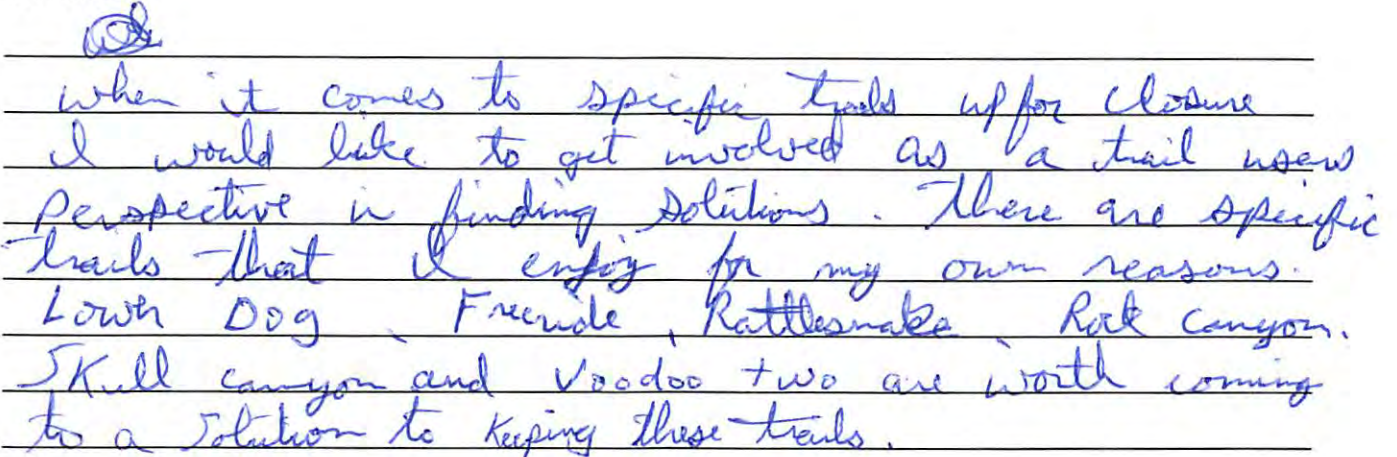 when it comes to specific trails up for closure
I would like to get involved as a trail users
perspective in finding solutions. There are specific
trails that I enjoy for my own reasons.
Lower Dog, Freeride, Rattlesnake, Rock canyon.
Skull canyon and Voodoo two are worth coming
to a solution to keeping these trails.